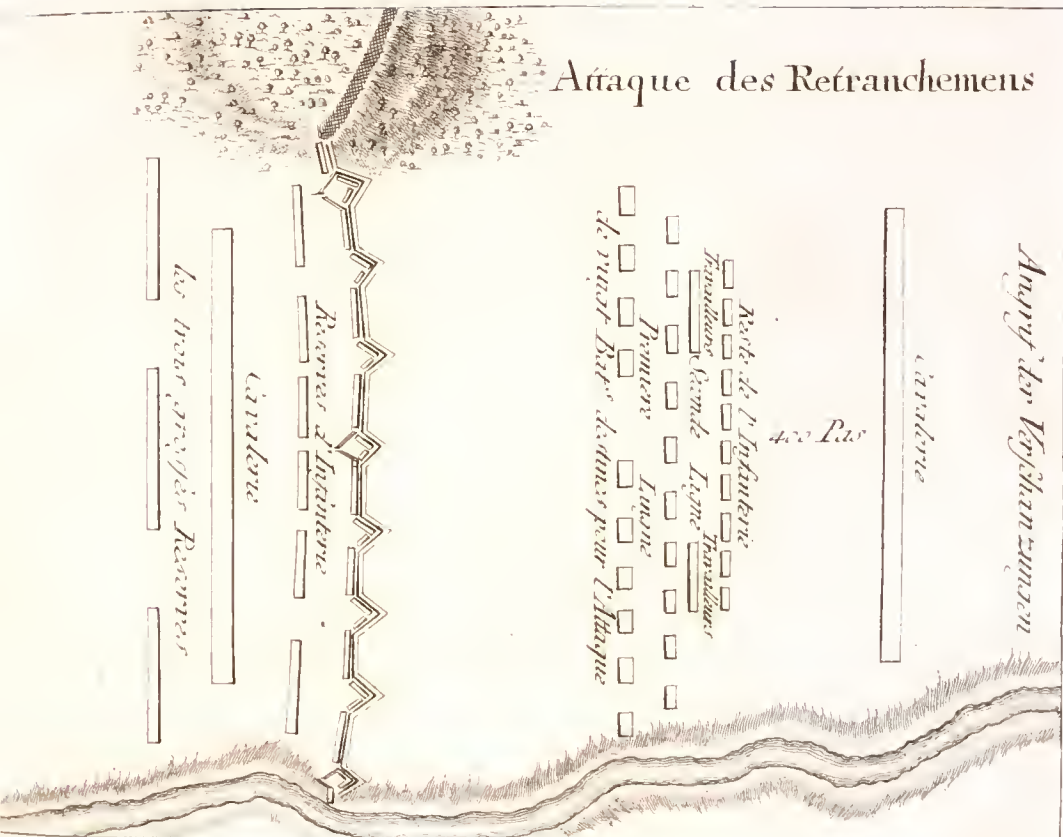 Attaque des Retranchemens
Angrif der Verschanzungen
Cavalerie
400 Pas
Reste de l'Infanterie
Travailleurs Seconde Ligne Travailleurs
Premiere Linsne
de vingt Bat.s destinés pour l'Attaque
Reserves d'Infanterie
Cavalerie
les trois grosses Reserves